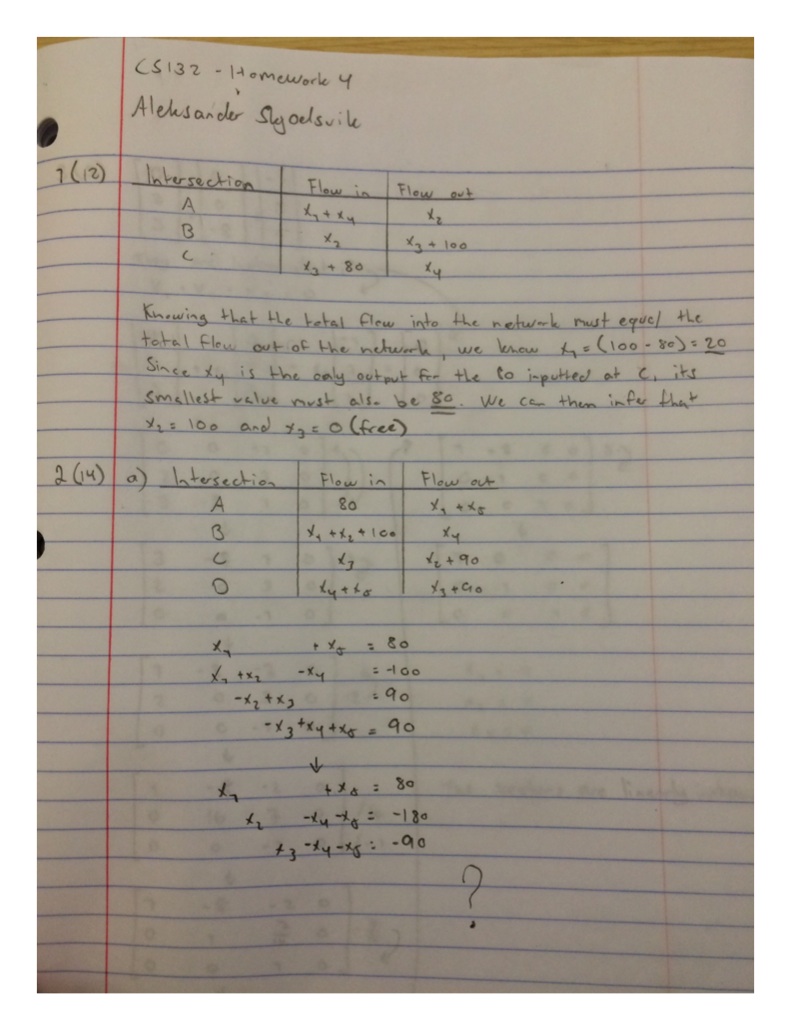 CS132 - Homework 4
Aleksander
1 (12) Intersection Flow in Flow out
A x₁ + x₄ x₂
B x₂ x₃ + 100
C x₃ + 80 x₄
Knowing that the total flow into the network must equal the
total flow out of the network, we know x₁ = (100 - 80) = 20
Since x₄ is the only output for the 80 inputted at C, its
smallest value must also be 80. We can then infer that
x₂ = 100 and x₃ = 0 (free)
2 (14) a) Intersection Flow in Flow out
A 80 x₁ + x₅
B x₁ + x₂ + 100 x₄
C x₃ x₂ + 90
D x₄ + x₅ x₃ + 90
x₁ + x₅ = 80
x₁ + x₂ - x₄ = -100
-x₂ + x₃ = 90
-x₃ + x₄ + x₅ = 90
↓
x₁ + x₅ = 80
x₂ - x₄ - x₅ = -180
x₃ - x₄ - x₅ = -90
?